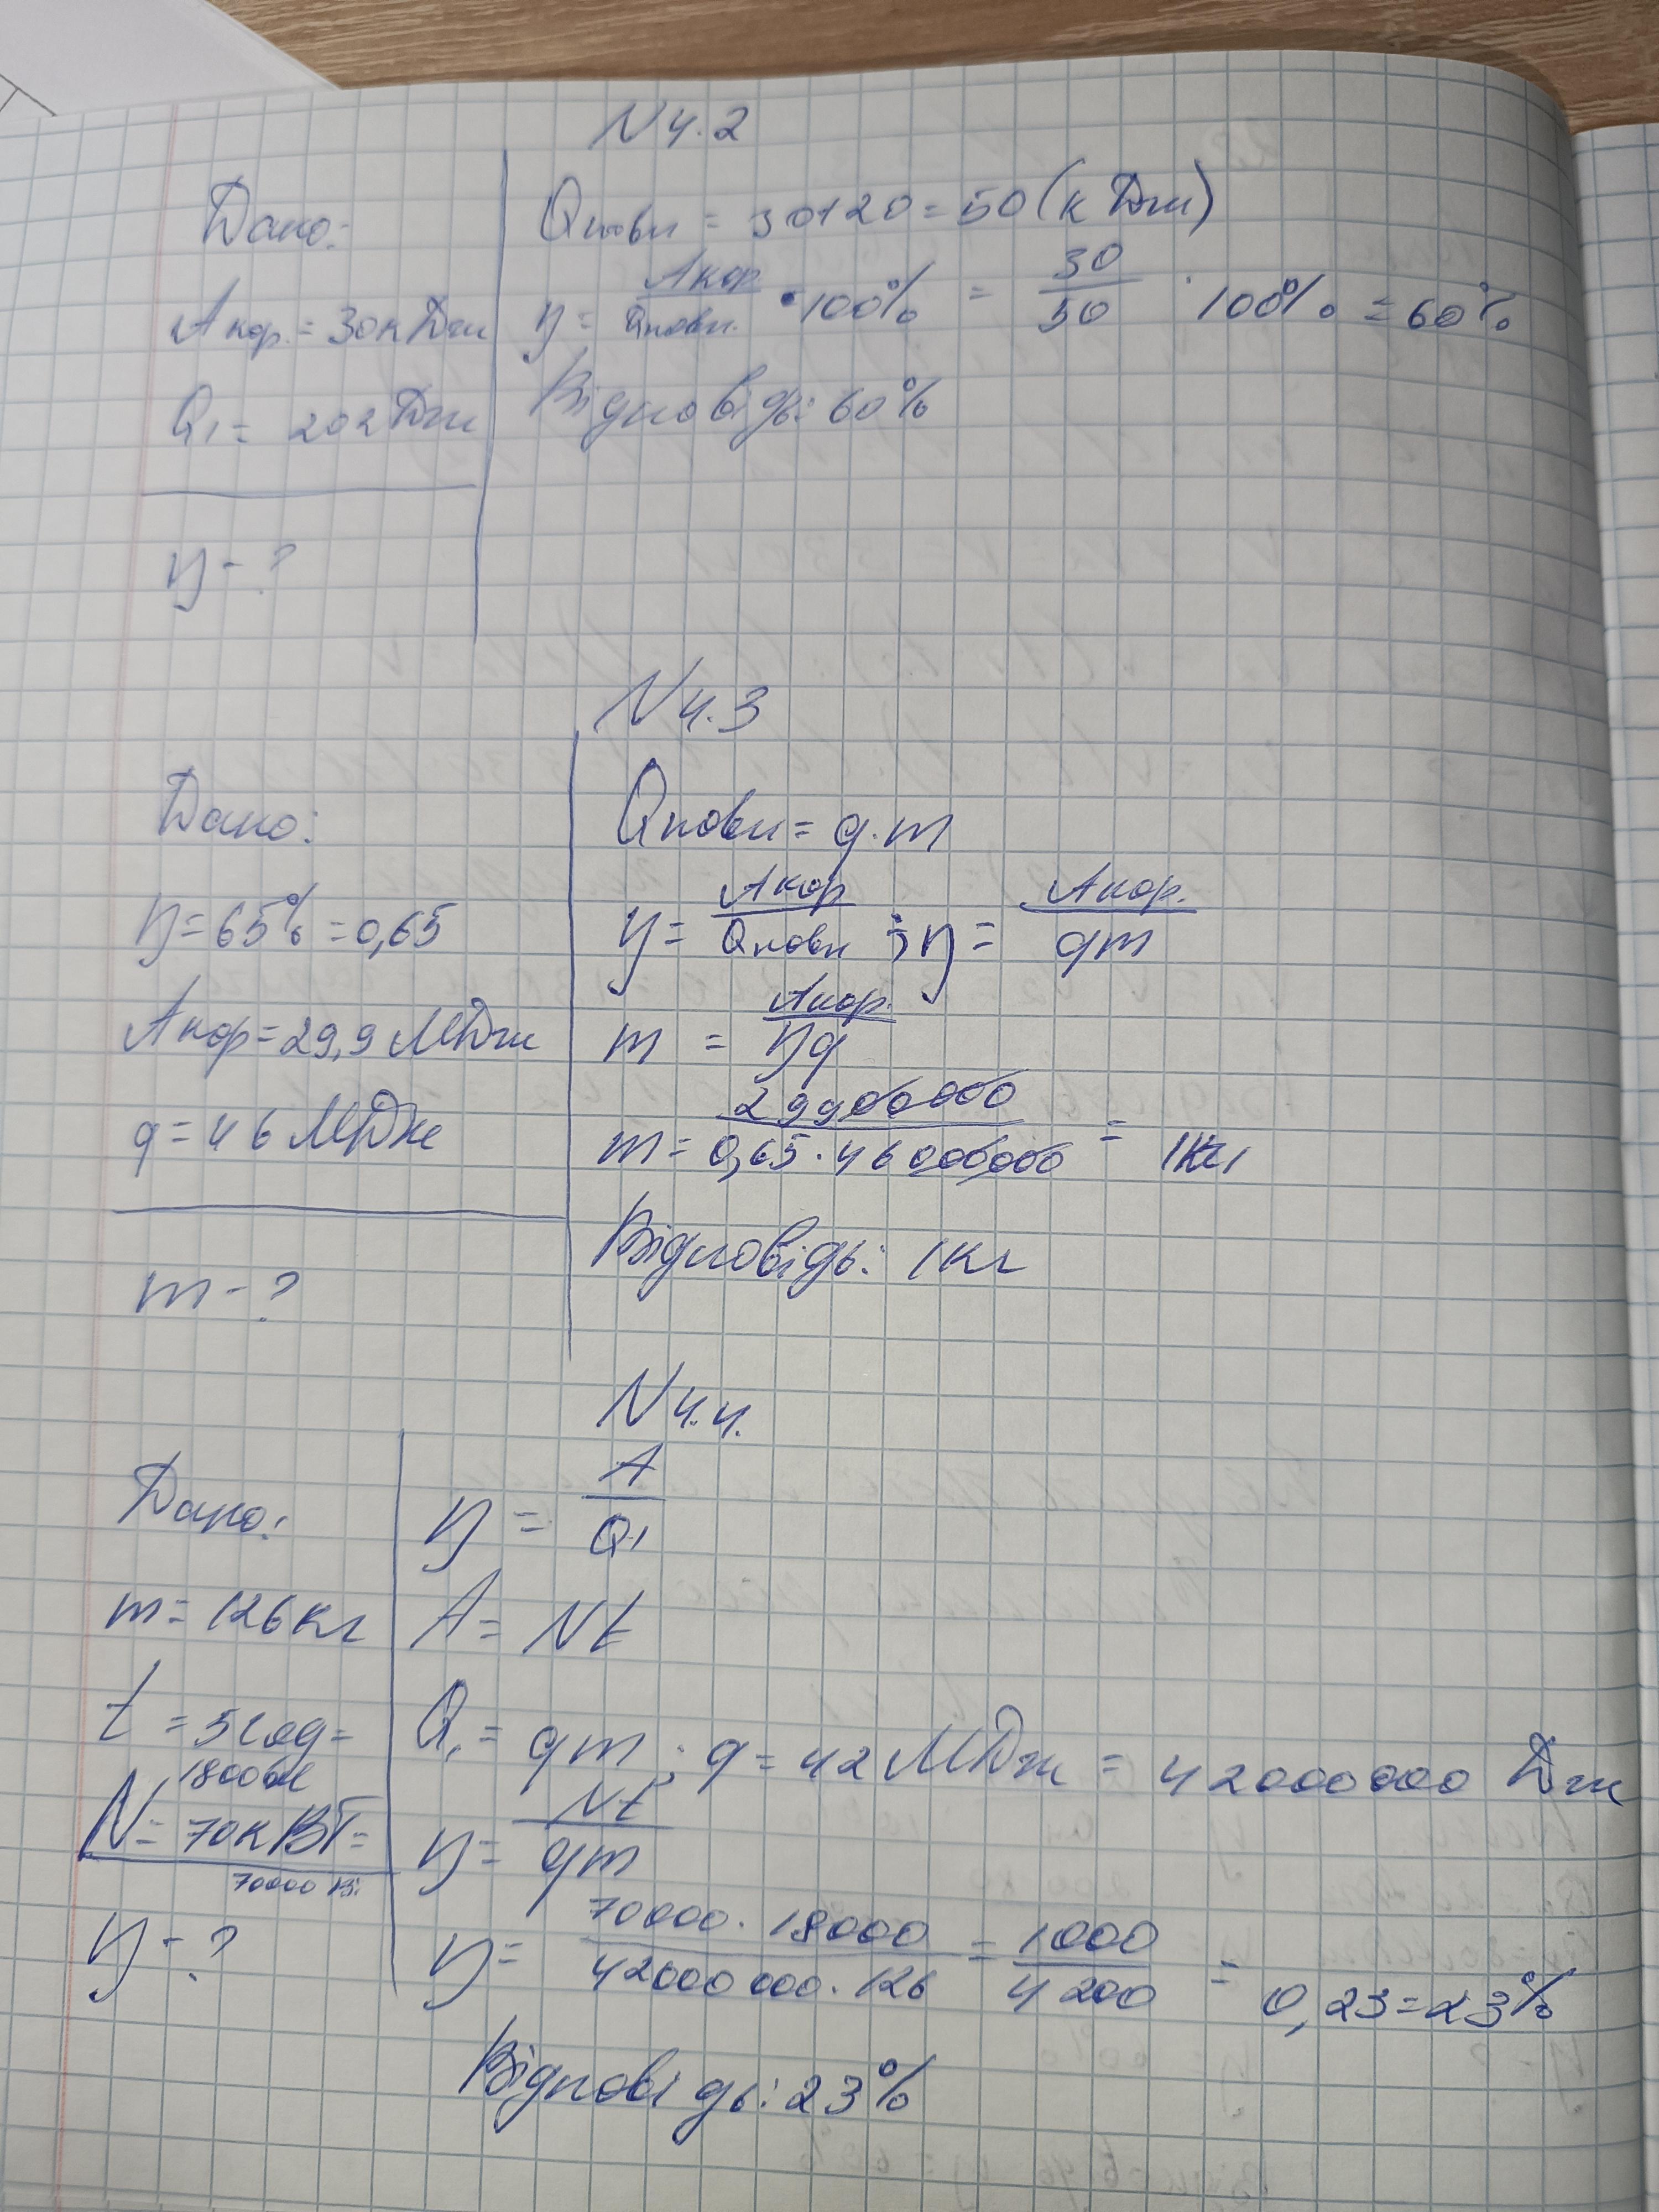 N 4.2
Дано:
Aкор. = 30кДж
Q1 = 202Дж
η - ?
Qповн = 30+20 = 50 (кДж)
η = Aкор / Qповн. · 100% = 30/50 · 100% = 60%
Відповідь: 60%
N 4.3
Дано:
η = 65% = 0,65
Aкор = 29,9 МДж
q = 46 МДж
m - ?
Qповн = q·m
η = Aкор / Qповн ; η = Aкор. / qm
m = Aкор. / ηq
m = 29900000 / 0,65·46000000 = 1кг
Відповідь: 1кг
N 4.4.
Дано:
m = 126кг
t = 5год =
18000с
N = 70кВт =
70000 Вт
η - ?
η = A / Q1
A = Nt
Q1 = qm ; q = 42 МДж = 42000000 Дж
η = Nt / qm
η = 70000·18000 / 42000000·126 = 1000/4200 = 0,23 = 23%
Відповідь: 23%